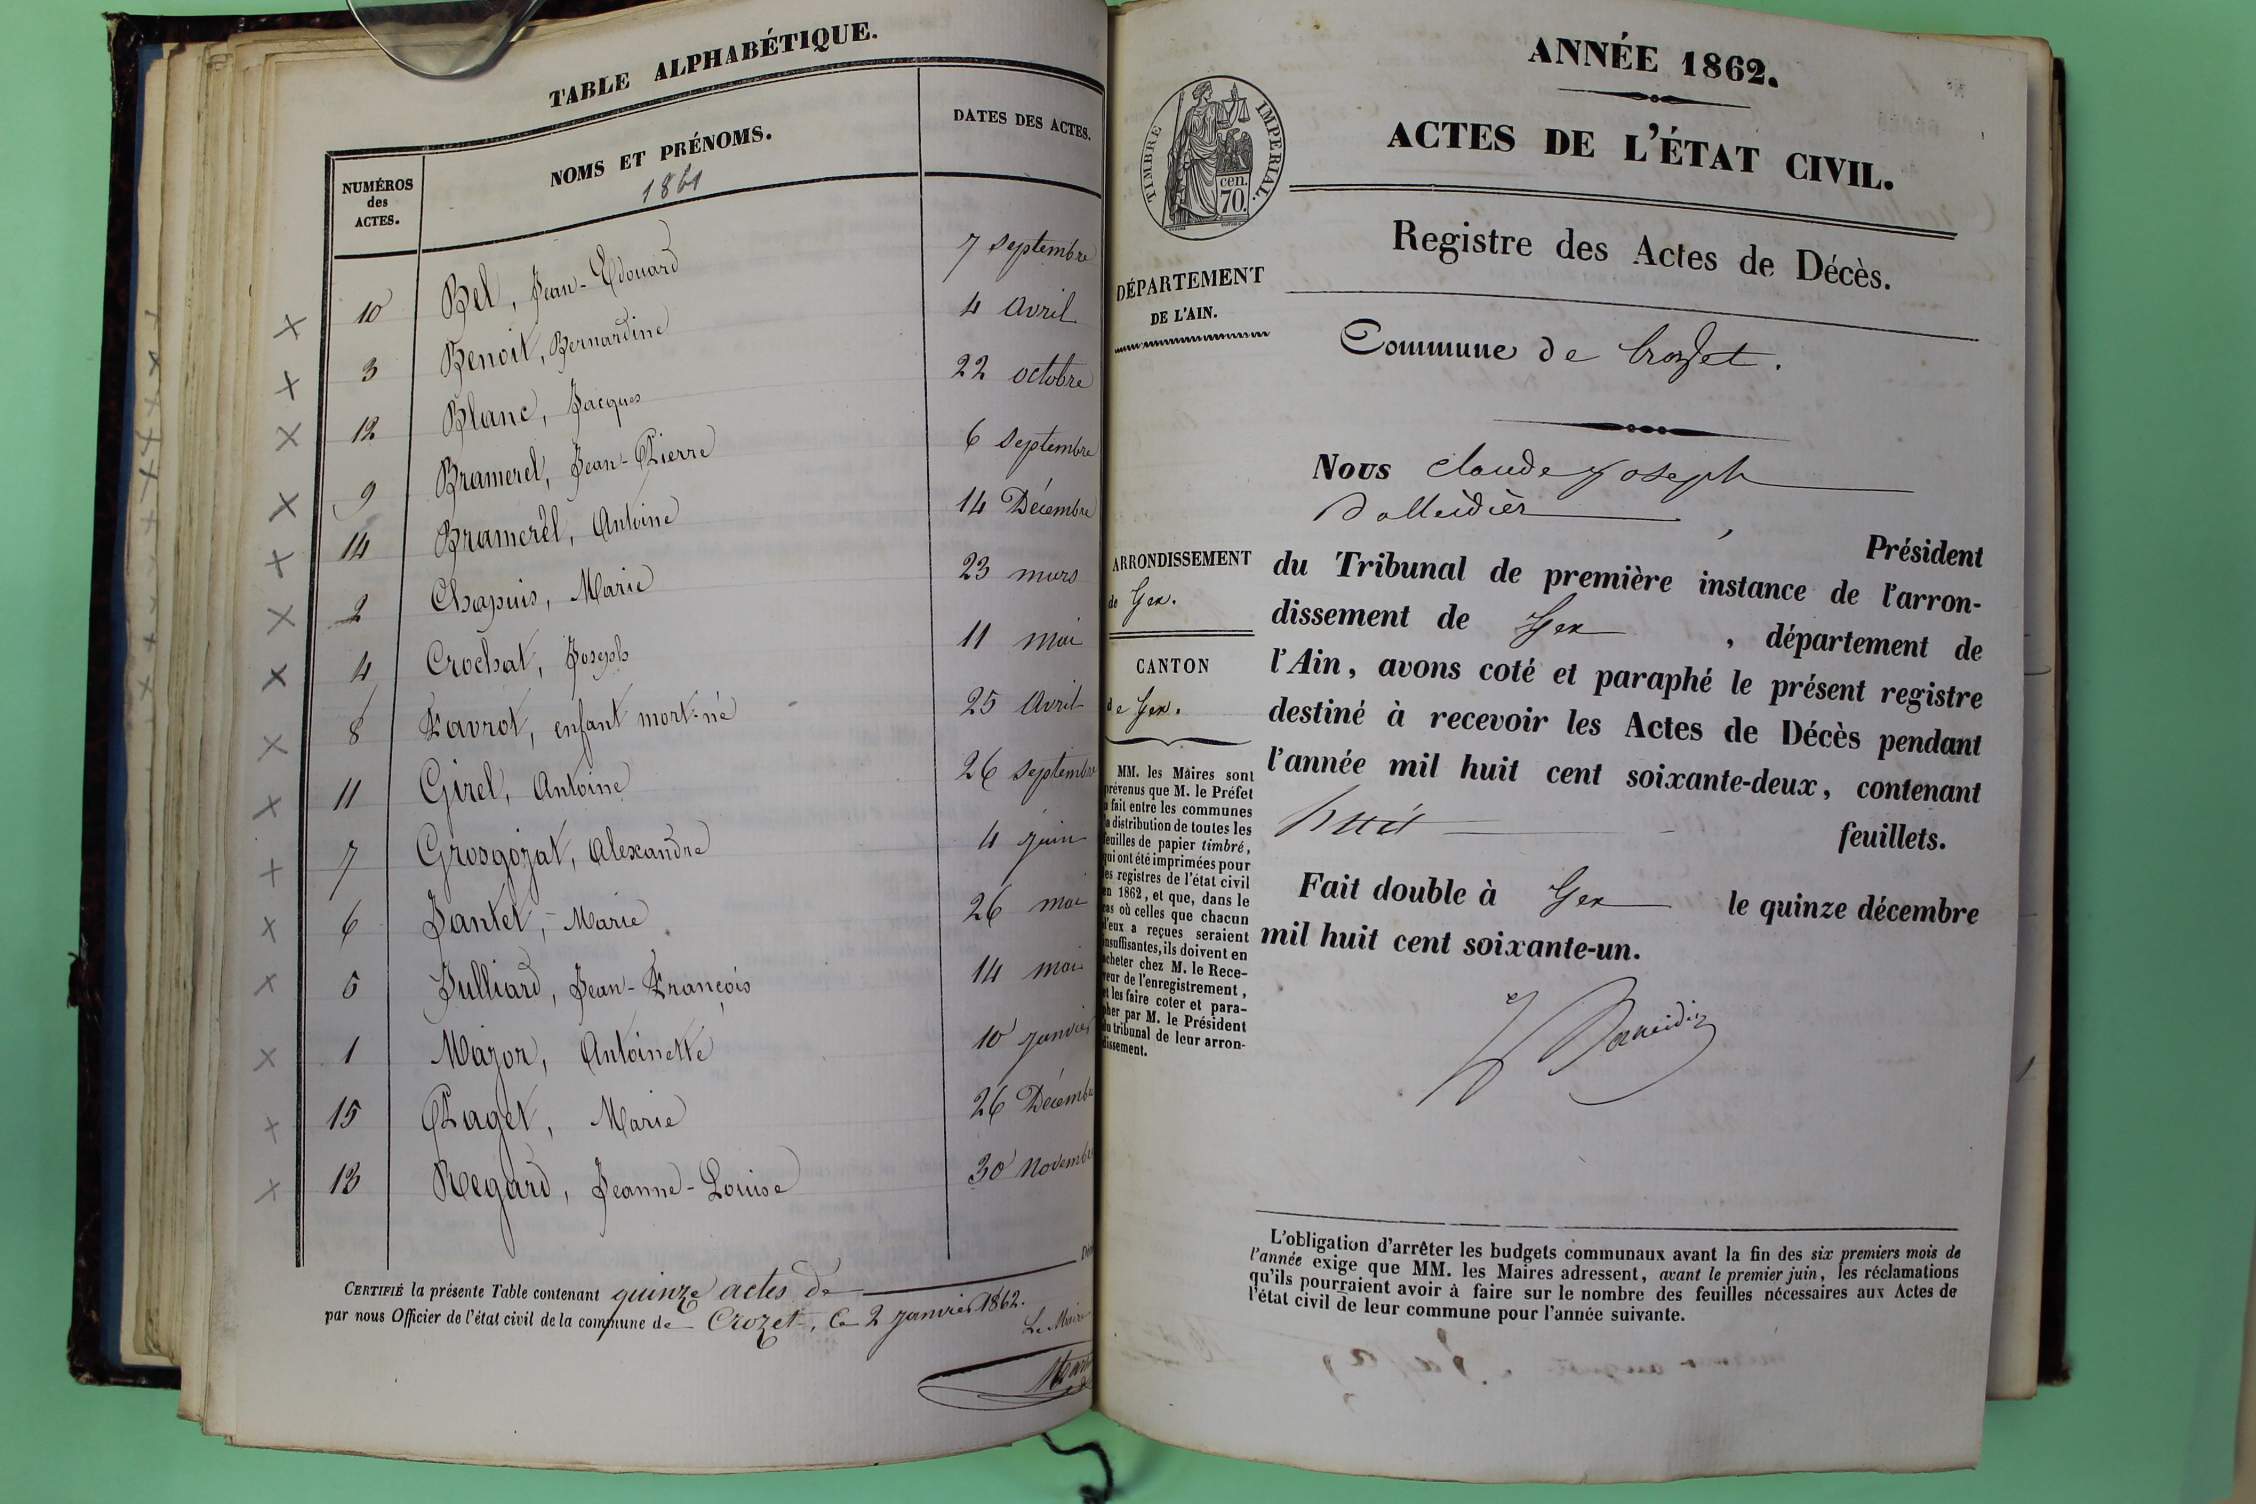 TABLE ALPHABÉTIQUE.
NUMÉROS des ACTES.
NOMS ET PRÉNOMS.
1861
DATES DES ACTES.
10 Bel, Jean-Edouard 7 septembre
3 Benoit, Bernardine 4 avril
12 Blanc, Jacques 22 octobre
9 Bramerel, Jean-Pierre 6 septembre
14 Bramerel, Antoine 14 Décembre
2 Chapuis, Marie 23 mars
4 Crochat, Joseph 11 mai
8 Favrot, enfant mort-né 25 avril
11 Girel, Antoine 26 septembre
7 Grosgozat, Alexandre 4 juin
6 Jantet, Marie 26 mai
5 Julliard, Jean-François 14 mai
1 Major, Antoinette 10 janvier
15 Paget, Marie 26 Décembre
13 Regard, Jeanne-Louise 30 Novembre
CERTIFIÉ la présente Table contenant quinze actes de
par nous Officier de l'état civil de la commune de Crozet, le 2 janvier 1862.
Le Maire
ANNÉE 1862.
TIMBRE IMPERIAL.
cen.
70.
ACTES DE L'ÉTAT CIVIL.
Registre des Actes de Décès.
DÉPARTEMENT
DE L'AIN.
Commune de Crozet.
ARRONDISSEMENT
de Gex.
CANTON
de Gex.
MM. les Maires sont
prévenus que M. le Préfet
a fait entre les communes
la distribution de toutes les
feuilles de papier timbré,
qui ont été imprimées pour
les registres de l'état civil
en 1862, et que, dans le
cas où celles que chacun
d'eux a reçues seraient
insuffisantes, ils doivent en
acheter chez M. le Rece-
veur de l'enregistrement,
et les faire coter et para-
pher par M. le Président
du tribunal de leur arron-
dissement.
Nous Claude Joseph
, Président
du Tribunal de première instance de l'arron-
dissement de Gex , département de
l'Ain, avons coté et paraphé le présent registre
destiné à recevoir les Actes de Décès pendant
l'année mil huit cent soixante-deux, contenant
huit feuillets.
Fait double à Gex le quinze décembre
mil huit cent soixante-un.
L'obligation d'arrêter les budgets communaux avant la fin des six premiers mois de
l'année exige que MM. les Maires adressent, avant le premier juin, les réclamations
qu'ils pourraient avoir à faire sur le nombre des feuilles nécessaires aux Actes de
l'état civil de leur commune pour l'année suivante.